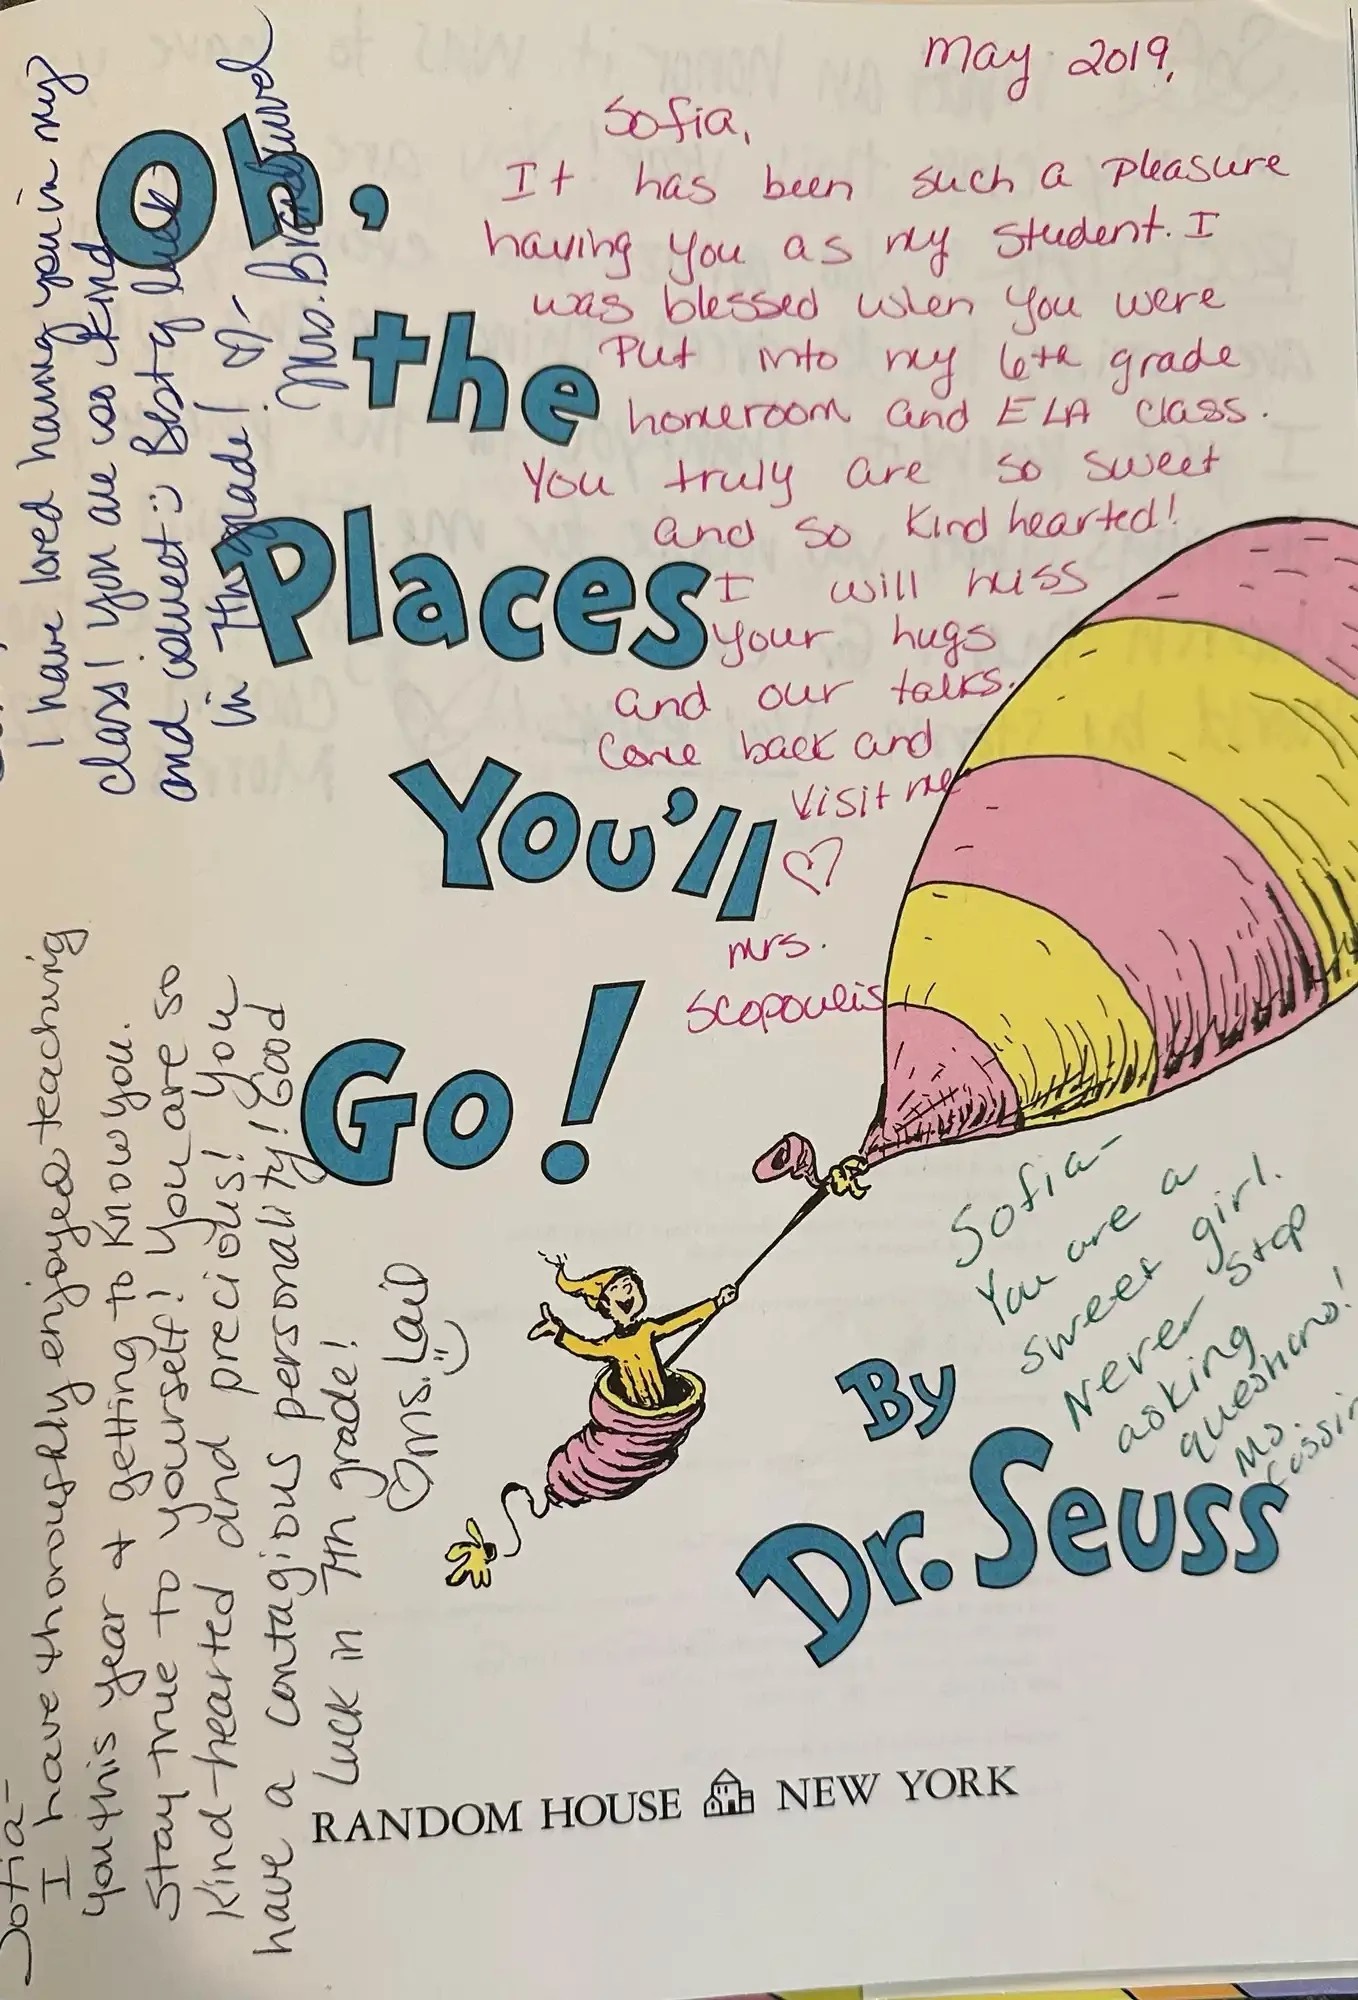 May 2019,
Sofia,
It has been such a pleasure
having you as my student. I
was blessed when you were
put into my 6th grade
homeroom and ELA class.
You truly are so sweet
and so kind hearted!
I will miss
your hugs
and our talks.
Come back and
visit me
♡
Mrs.
Scopoulis
Oh,
the
Places
You'll
Go!
By
Dr. Seuss
RANDOM HOUSE NEW YORK
I have loved having you in my
class! You are so kind
and sweet :) Best of luck
in 7th grade! ♡-
Mrs.
Sofia-
I have thoroughly enjoyed teaching
you this year + getting to know you.
Stay true to yourself! You are so
kind-hearted and precious! You
have a contagious personality! Good
luck in 7th grade!
♡ Ms. Laid
Sofia-
You are a
sweet girl.
Never stop
asking
questions!
Ms.